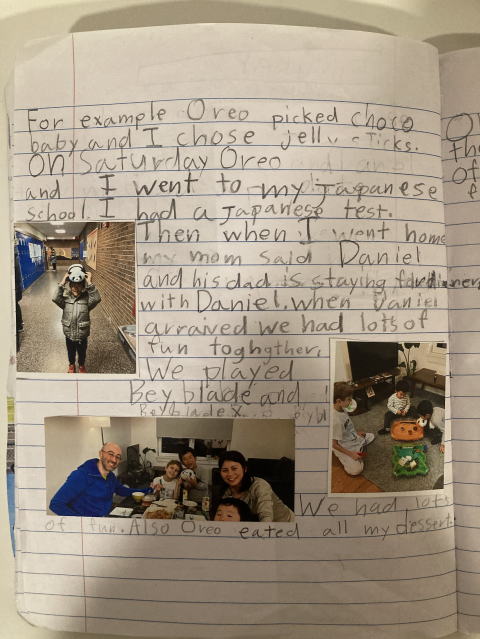 For example Oreo picked choco
baby and I chose jelly sticks.
On Saturday Oreo
and I went to my japanese
school. I had a Japanese test.
Then when I went home
my mom said Daniel
and his dad is staying for dinner
with Daniel. when Daniel
arraived we had lots of
fun toghgther.
We played
Bey blade and
Beyblade X.
We had lots
of fun. Also Oreo eated all my dessert.